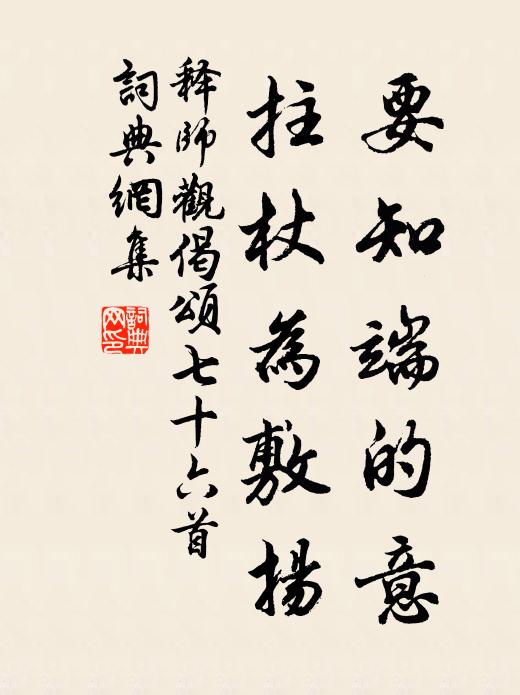 要知端的意
拄杖為敷揚
释師觀偈頌七十六首
詞典網集
詞典網印